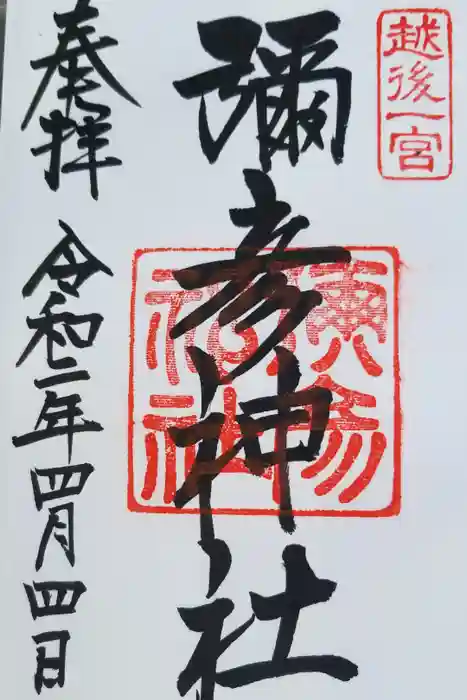 越後一宮
彌彦神社
奉拝
令和二年四月四日